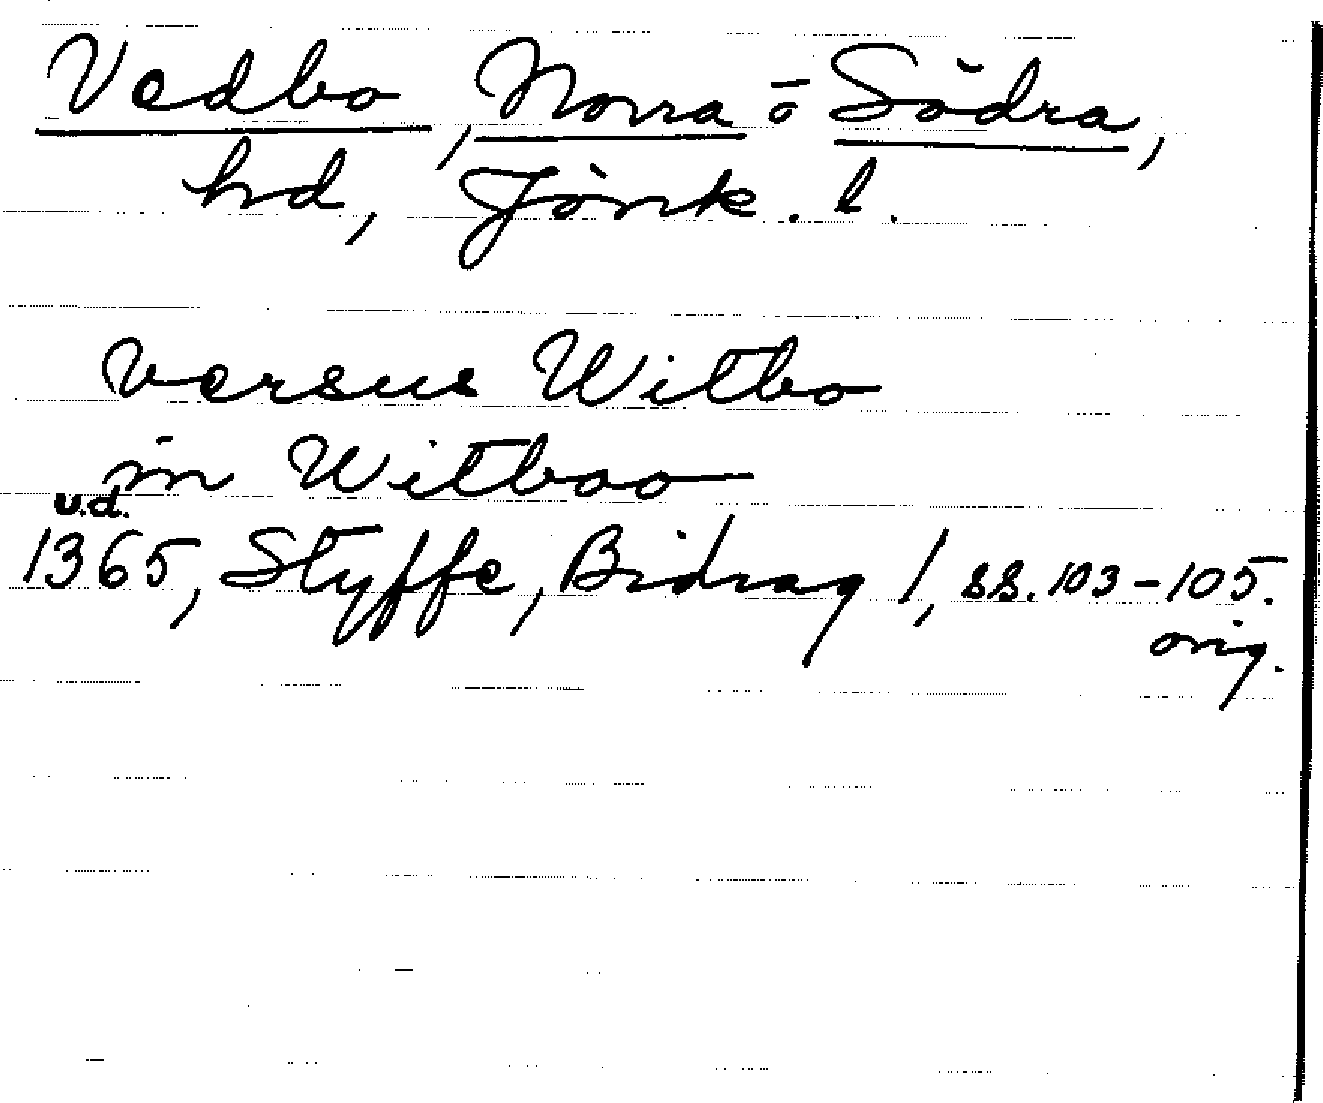 Vedbo, Norra o Södra,
hd, Jönk. l.
versus Witbo
in Witboo
u.d.
1365, Styffe, Bidrag 1, ss. 103-105.
orig.